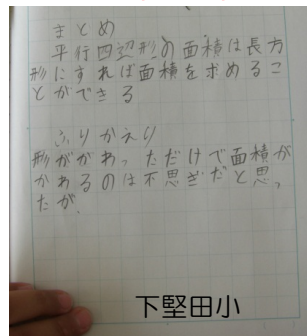 まとめ
平行四辺形の面積は長方
形にすれば面積を求めるこ
とができる
ふりかえり
形がかわっただけで面積が
かあるのは不思ぎだと思っ
たが、
下堅田小